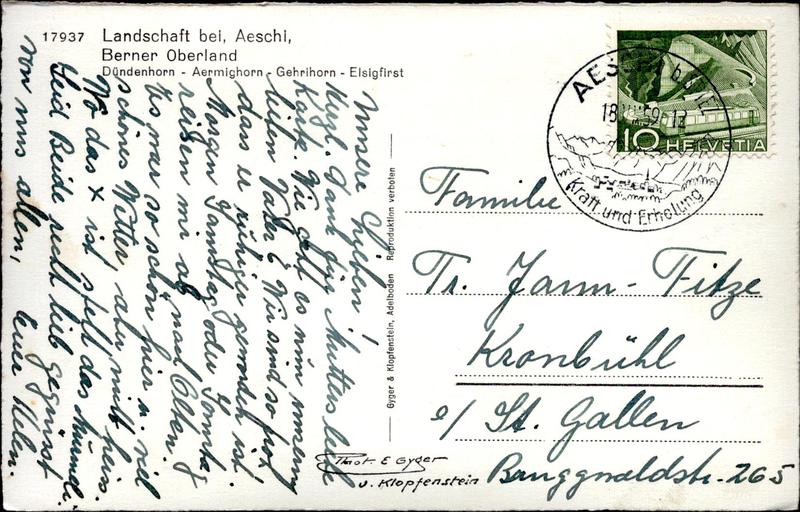 17937 Landschaft bei, Aeschi,
Berner Oberland
Dündenhorn - Aermighorn - Gehrihorn - Elsigfirst
Unsere Lieben!
Hrzl. Dank für Mutters liebe
Karte. Wie geht es nun unserm
lieben Vater? Wir sind so froh
dass er ruhiger geworden ist.
Morgen Samstag oder Sonntag
reisen wir ab, nach Olten.
Es war so schön hier u. viel
schönes Wetter, aber nicht heiss.
Wo das x ist steht das
Seid Beide recht lieb gegrüsst
von uns allen, Helen.
Gyger & Klopfenstein, Adelboden Reproduktion verboten
Phot. E Gyger
u. Klopfenstein
AESCHI b.
18. 59. 12
Kraft und Erholung
10 HELVETIA
Familie
Tr. Jann - Fitze
Kronbühl
b/ St. Gallen
Bruggwaldstr. 265